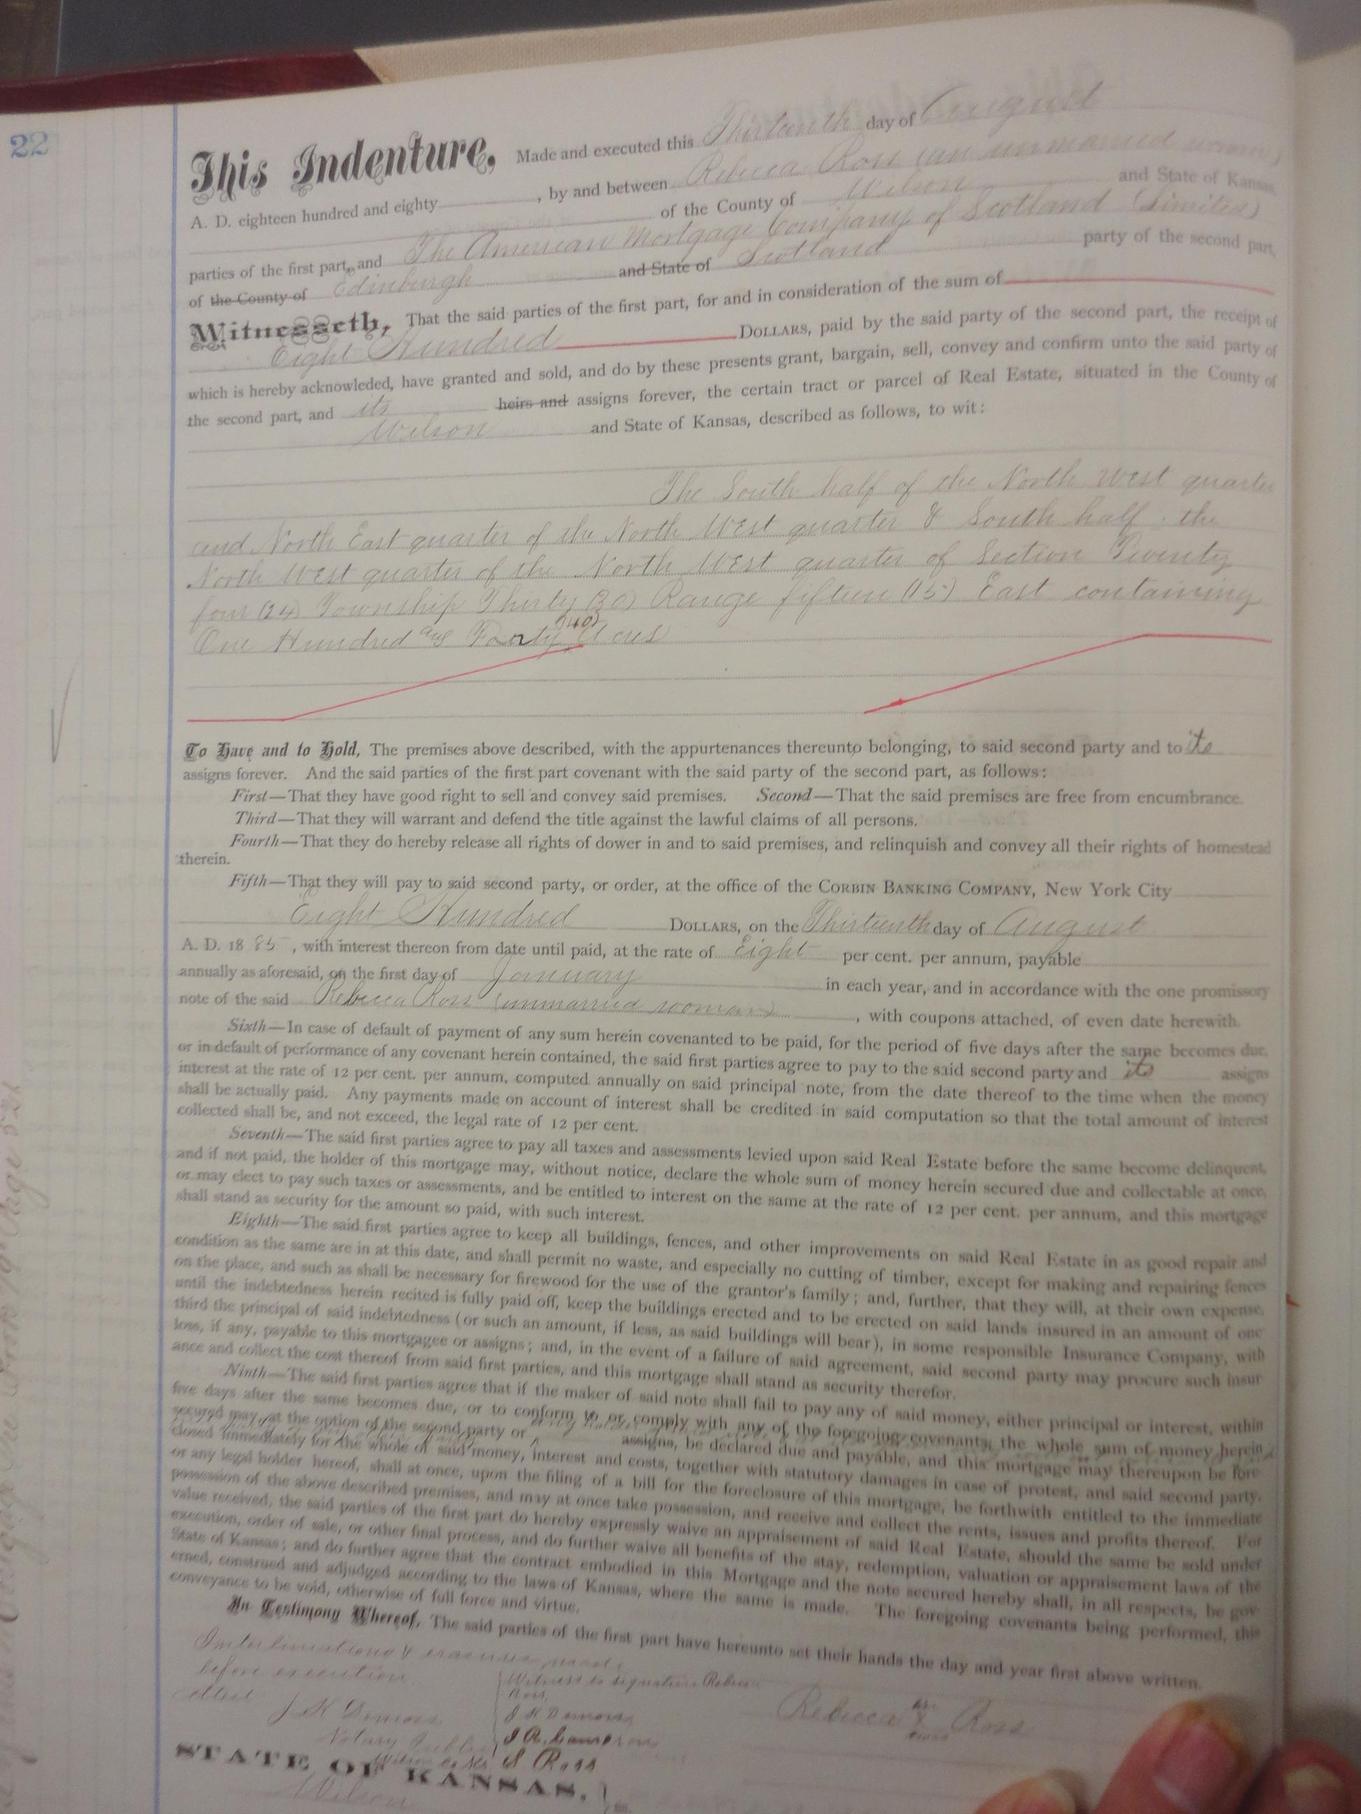 22
This Indenture, Made and executed this Thirteenth day of August
A. D. eighteen hundred and eighty , by and between Rebecca Ross (an unmarried woman)
of the County of Wilson and State of Kansas,
parties of the first part, and The American Mortgage Company of Scotland (Limited)
of the County of Edinburgh and State of Scotland party of the second part,
Witnesseth, That the said parties of the first part, for and in consideration of the sum of
Eight Hundred DOLLARS, paid by the said party of the second part, the receipt of
which is hereby acknowleded, have granted and sold, and do by these presents grant, bargain, sell, convey and confirm unto the said party of
the second part, and its heirs and assigns forever, the certain tract or parcel of Real Estate, situated in the County of
Wilson and State of Kansas, described as follows, to wit:
The South half of the North West quarter
and North East quarter of the North West quarter & South half the
North West quarter of the North West quarter of Section Twenty
four (24) Township Thirty (30) Range fifteen (15) East containing
One Hundred and Forty (140) Acres
To Have and to Hold, The premises above described, with the appurtenances thereunto belonging, to said second party and to its
assigns forever. And the said parties of the first part covenant with the said party of the second part, as follows:
First—That they have good right to sell and convey said premises. Second—That the said premises are free from encumbrance.
Third—That they will warrant and defend the title against the lawful claims of all persons.
Fourth—That they do hereby release all rights of dower in and to said premises, and relinquish and convey all their rights of homestead
therein.
Fifth—That they will pay to said second party, or order, at the office of the CORBIN BANKING COMPANY, New York City
Eight Hundred DOLLARS, on the Thirteenth day of August
A. D. 18 85 , with interest thereon from date until paid, at the rate of Eight per cent. per annum, payable
annually as aforesaid, on the first day of January in each year, and in accordance with the one promissory
note of the said Rebecca Ross (unmarried woman) , with coupons attached, of even date herewith.
Sixth—In case of default of payment of any sum herein covenanted to be paid, for the period of five days after the same becomes due,
or in default of performance of any covenant herein contained, the said first parties agree to pay to the said second party and its assigns
interest at the rate of 12 per cent. per annum, computed annually on said principal note, from the date thereof to the time when the money
shall be actually paid. Any payments made on account of interest shall be credited in said computation so that the total amount of interest
collected shall be, and not exceed, the legal rate of 12 per cent.
Seventh—The said first parties agree to pay all taxes and assessments levied upon said Real Estate before the same become delinquent,
and if not paid, the holder of this mortgage may, without notice, declare the whole sum of money herein secured due and collectable at once,
or may elect to pay such taxes or assessments, and be entitled to interest on the same at the rate of 12 per cent. per annum, and this mortgage
shall stand as security for the amount so paid, with such interest.
Eighth—The said first parties agree to keep all buildings, fences, and other improvements on said Real Estate in as good repair and
condition as the same are in at this date, and shall permit no waste, and especially no cutting of timber, except for making and repairing fences
on the place, and such as shall be necessary for firewood for the use of the grantor's family; and, further, that they will, at their own expense,
until the indebtedness herein recited is fully paid off, keep the buildings erected and to be erected on said lands insured in an amount of one
third the principal of said indebtedness (or such an amount, if less, as said buildings will bear), in some responsible Insurance Company, with
loss, if any, payable to this mortgagee or assigns; and, in the event of a failure of said agreement, said second party may procure such insur
ance and collect the cost thereof from said first parties, and this mortgage shall stand as security therefor.
Ninth—The said first parties agree that if the maker of said note shall fail to pay any of said money, either principal or interest, within
five days after the same becomes due, or to conform to or comply with any of the foregoing covenants, the whole sum of money herein
secured may, at the option of the second party or assigns, be declared due and payable, and this mortgage may thereupon be fore
closed immediately for the whole of said money, interest and costs, together with statutory damages in case of protest, and said second party,
or any legal holder hereof, shall at once, upon the filing of a bill for the foreclosure of this mortgage, be forthwith entitled to the immediate
possession of the above described premises, and may at once take possession, and receive and collect the rents, issues and profits thereof. For
value received, the said parties of the first part do hereby expressly waive an appraisement of said Real Estate, should the same be sold under
execution, order of sale, or other final process, and do further waive all benefits of the stay, redemption, valuation or appraisement laws of the
State of Kansas; and do further agree that the contract embodied in this Mortgage and the note secured hereby shall, in all respects, be gov
erned, construed and adjudged according to the laws of Kansas, where the same is made. The foregoing covenants being performed, this
conveyance to be void, otherwise of full force and virtue.
In Testimony Whereof, The said parties of the first part have hereunto set their hands the day and year first above written.
Interlineations & erasures made
before execution
Attest J K Demoss
Notary Public
Wilson Co Ks
Witness to signature Rebecca
Ross
J K Demoss
S Ross
Rebecca her X mark Ross
STATE OF KANSAS,
Wilson